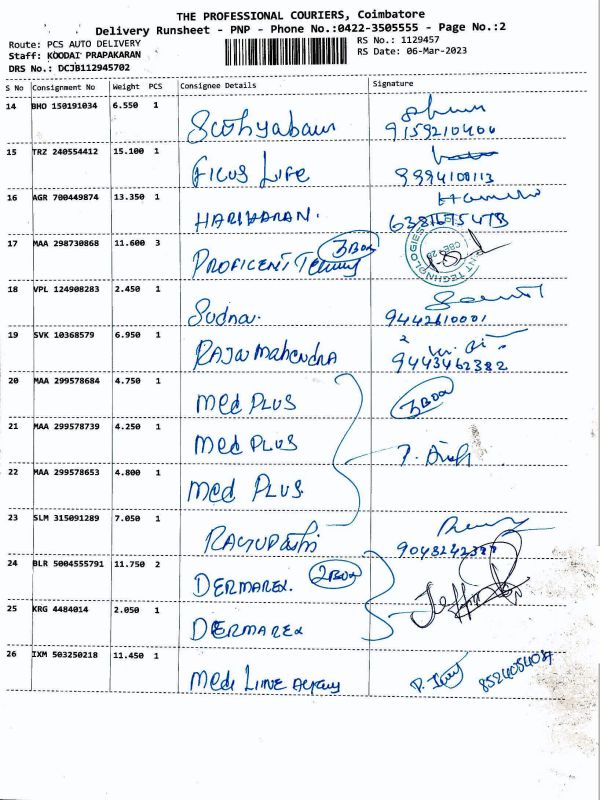 THE PROFESSIONAL COURIERS, Coimbatore
Delivery Runsheet - PNP - Phone No.:0422-3505555 - Page No.:2
Route: PCS AUTO DELIVERY
RS No.: 1129457
Staff: KOODAI PRAPAKARAN
RS Date: 06-Mar-2023
DRS No.: DCJB112945702
S No Consignment No Weight PCS Consignee Details Signature
14 BHO 150191034 6.550 1
9159210406
15 TRZ 240554412 15.100 1 FICUS LIFE
9994100113
16 AGR 700449874 13.350 1 HARIHARAN.
17 MAA 298730868 11.600 3 PROFICENT 3 BOX
18 VPL 124908283 2.450 1
9442610001
19 SVK 10368579 6.950 1 RAJA Mahendra
9443462382
20 MAA 299578684 4.750 1 Med PLUS 3 BOX
21 MAA 299578739 4.250 1 Med PLUS
22 MAA 299578653 4.800 1 Med PLUS.
23 SLM 315091289 7.050 1
24 BLR 5004555791 11.750 2 DERMAREX. 2 BOX
25 KRG 4484014 2.050 1 DERMAREX
26 IXM 503250218 11.450 1 Medi LINE